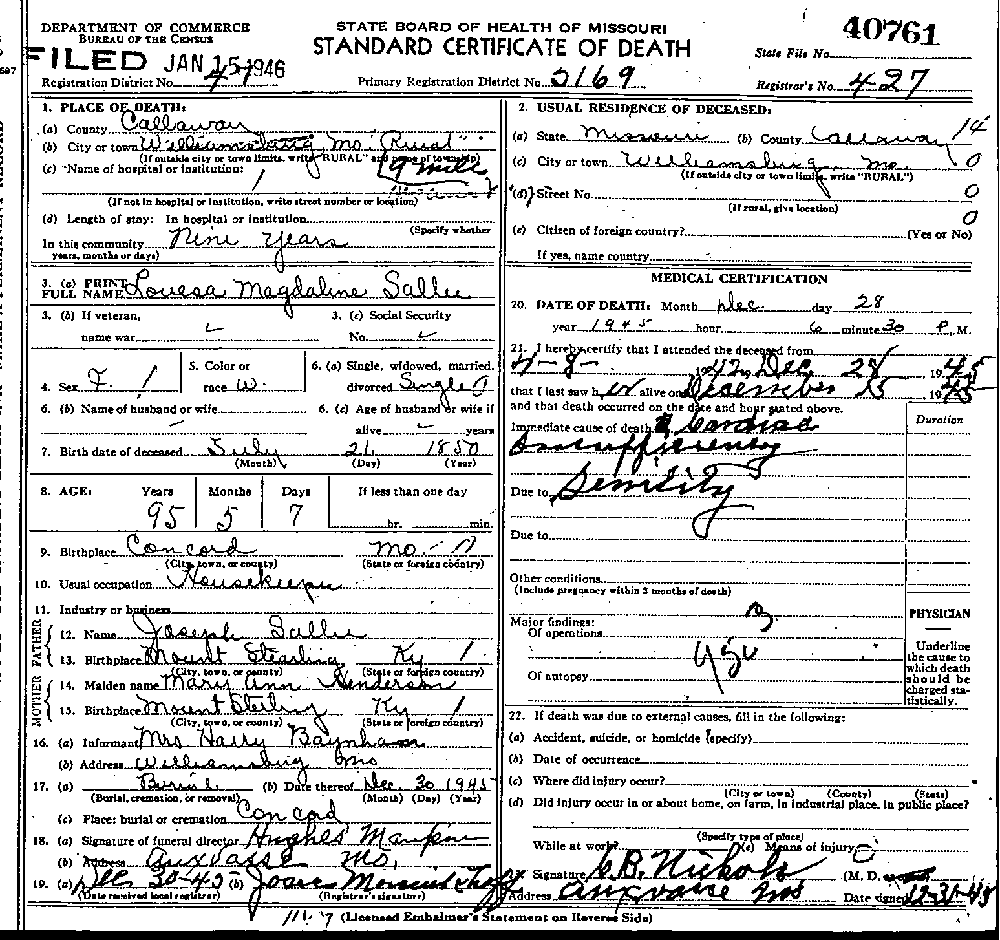 DEPARTMENT OF COMMERCE
BUREAU OF THE CENSUS
STATE BOARD OF HEALTH OF MISSOURI
STANDARD CERTIFICATE OF DEATH
40761
State File No.
FILED JAN 15 1946
Registration District No. 47
Primary Registration District No. 5169
Registrar's No. 427
1. PLACE OF DEATH:
(a) County Callaway
(b) City or town Williamsburg Mo. Rural
(If outside city or town limits, write "RURAL" and name of township)
(c) Name of hospital or institution:
9 mile
(If not in hospital or institution, write street number or location)
(d) Length of stay: In hospital or institution
(Specify whether
In this community Nine years
years, months or days)
3. (a) PRINT FULL NAME Louesa Magdaline Sallee
3. (b) If veteran, name war
3. (c) Social Security No.
4. Sex F
5. Color or race W.
6. (a) Single, widowed, married, divorced Single
6. (b) Name of husband or wife
6. (c) Age of husband or wife if alive years
7. Birth date of deceased July 21 1850
(Month) (Day) (Year)
8. AGE: Years Months Days If less than one day
95 5 7 hr. min.
9. Birthplace Concord Mo.
(City, town, or county) (State or foreign country)
10. Usual occupation Housekeeper
11. Industry or business
FATHER
12. Name Joseph Sallee
13. Birthplace Mount Stearling Ky
(City, town, or county) (State or foreign country)
MOTHER
14. Maiden name Mary Ann Henderson
15. Birthplace Mount Sterling Ky
(City, town, or county) (State or foreign country)
16. (a) Informant Mrs Harry Baynham
(b) Address Williamsburg Mo
17. (a) Burial (b) Date thereof Dec. 30 1945
(Burial, cremation, or removal) (Month) (Day) (Year)
(c) Place: burial or cremation Concord
18. (a) Signature of funeral director Hughes Maupin
(b) Address Auxvasse Mo.
19. (a) Dec 30-45 (b)
(Date received local registrar) (Registrar's signature)
2. USUAL RESIDENCE OF DECEASED:
(a) State Missouri (b) County Callaway 14
(c) City or town Williamsburg Mo. 0
(If outside city or town limits, write "RURAL")
(d) Street No. 0
(If rural, give location)
0
(e) Citizen of foreign country? (Yes or No)
If yes, name country
MEDICAL CERTIFICATION
20. DATE OF DEATH: Month Dec. day 28
year 1945 hour 6 minute 30 P. M.
21. I hereby certify that I attended the deceased from
4-8- 1942, Dec 28 1945
that I last saw her alive on December 15 1945
and that death occurred on the date and hour stated above.
Duration
Immediate cause of death Cardiac
Insufficiency
Due to Senility
Due to
Other conditions
(Include pregnancy within 3 months of death)
Major findings:
Of operations
Of autopsy
PHYSICIAN
Underline the cause to which death should be charged statistically.
22. If death was due to external causes, fill in the following:
(a) Accident, suicide, or homicide (specify)
(b) Date of occurrence
(c) Where did injury occur?
(City or town) (County) (State)
(d) Did injury occur in or about home, on farm, in industrial place, in public place?
(Specify type of place)
While at work? (e) Means of injury
Signature C.B. Nichols (M. D.
Address Auxvasse Mo Date signed 12-31-45
(Licensed Embalmer's Statement on Reverse Side)